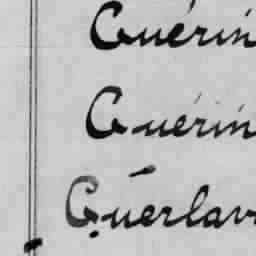 Guérin
Guérin
Guerlav